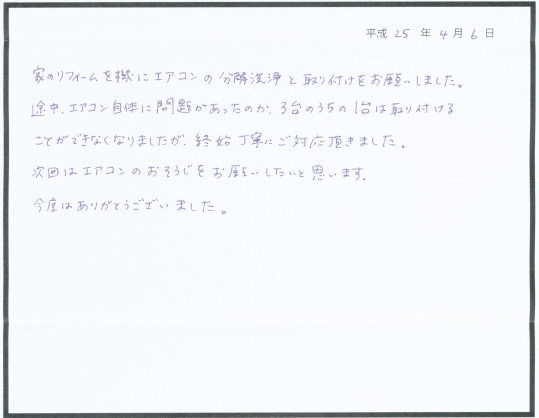 平成 25 年 4 月 6 日
家のリフォームを機にエアコンの分解洗浄と取り付けをお願いしました。
途中、エアコン自体に問題があったのか、3台のうちの1台は取り付ける
ことができなくなりましたが、終始丁寧にご対応頂きました。
次回はエアコンのおそうじをお願いしたいと思います。
今度はありがとうございました。